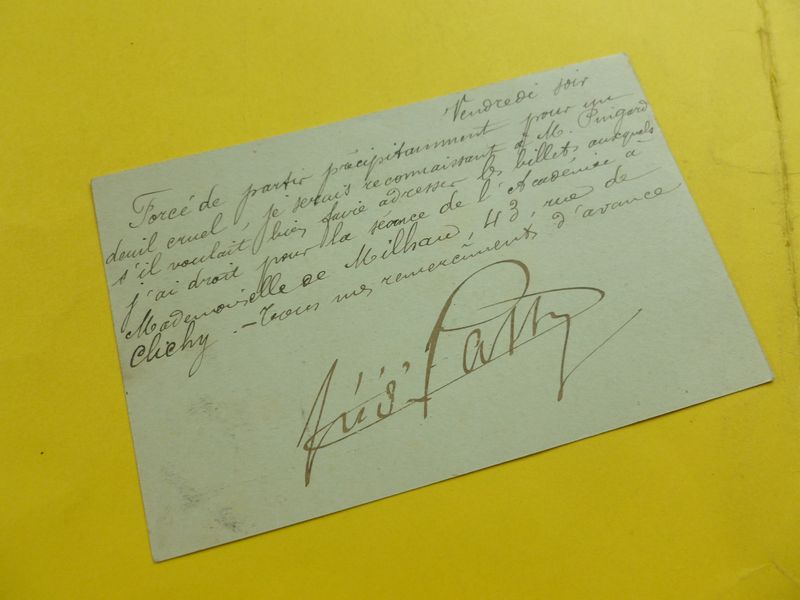 Vendredi soir
Forcé de partir précipitamment pour un
deuil cruel, je serais reconnaissant à M. Pingard
s'il voulait bien faire adresser les billets auxquels
j'ai droit pour la séance de l'Académie à
Mademoiselle de Milhau, 43, rue de
Clichy. – Tous mes remerciments d'avance